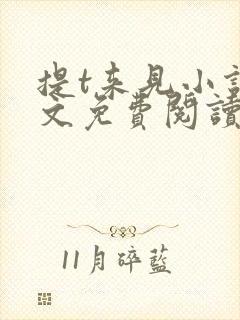 提t来见小說
文免費閱讀
11月碎藍